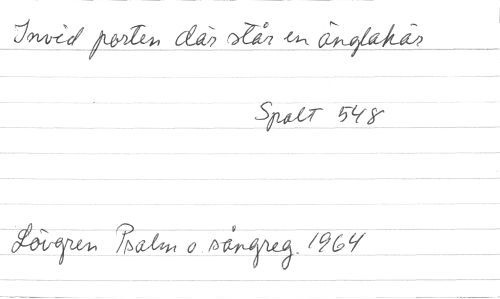 Invid porten där står en änglahär
Spalt 548
Lövgren Psalm o. sångreg. 1964